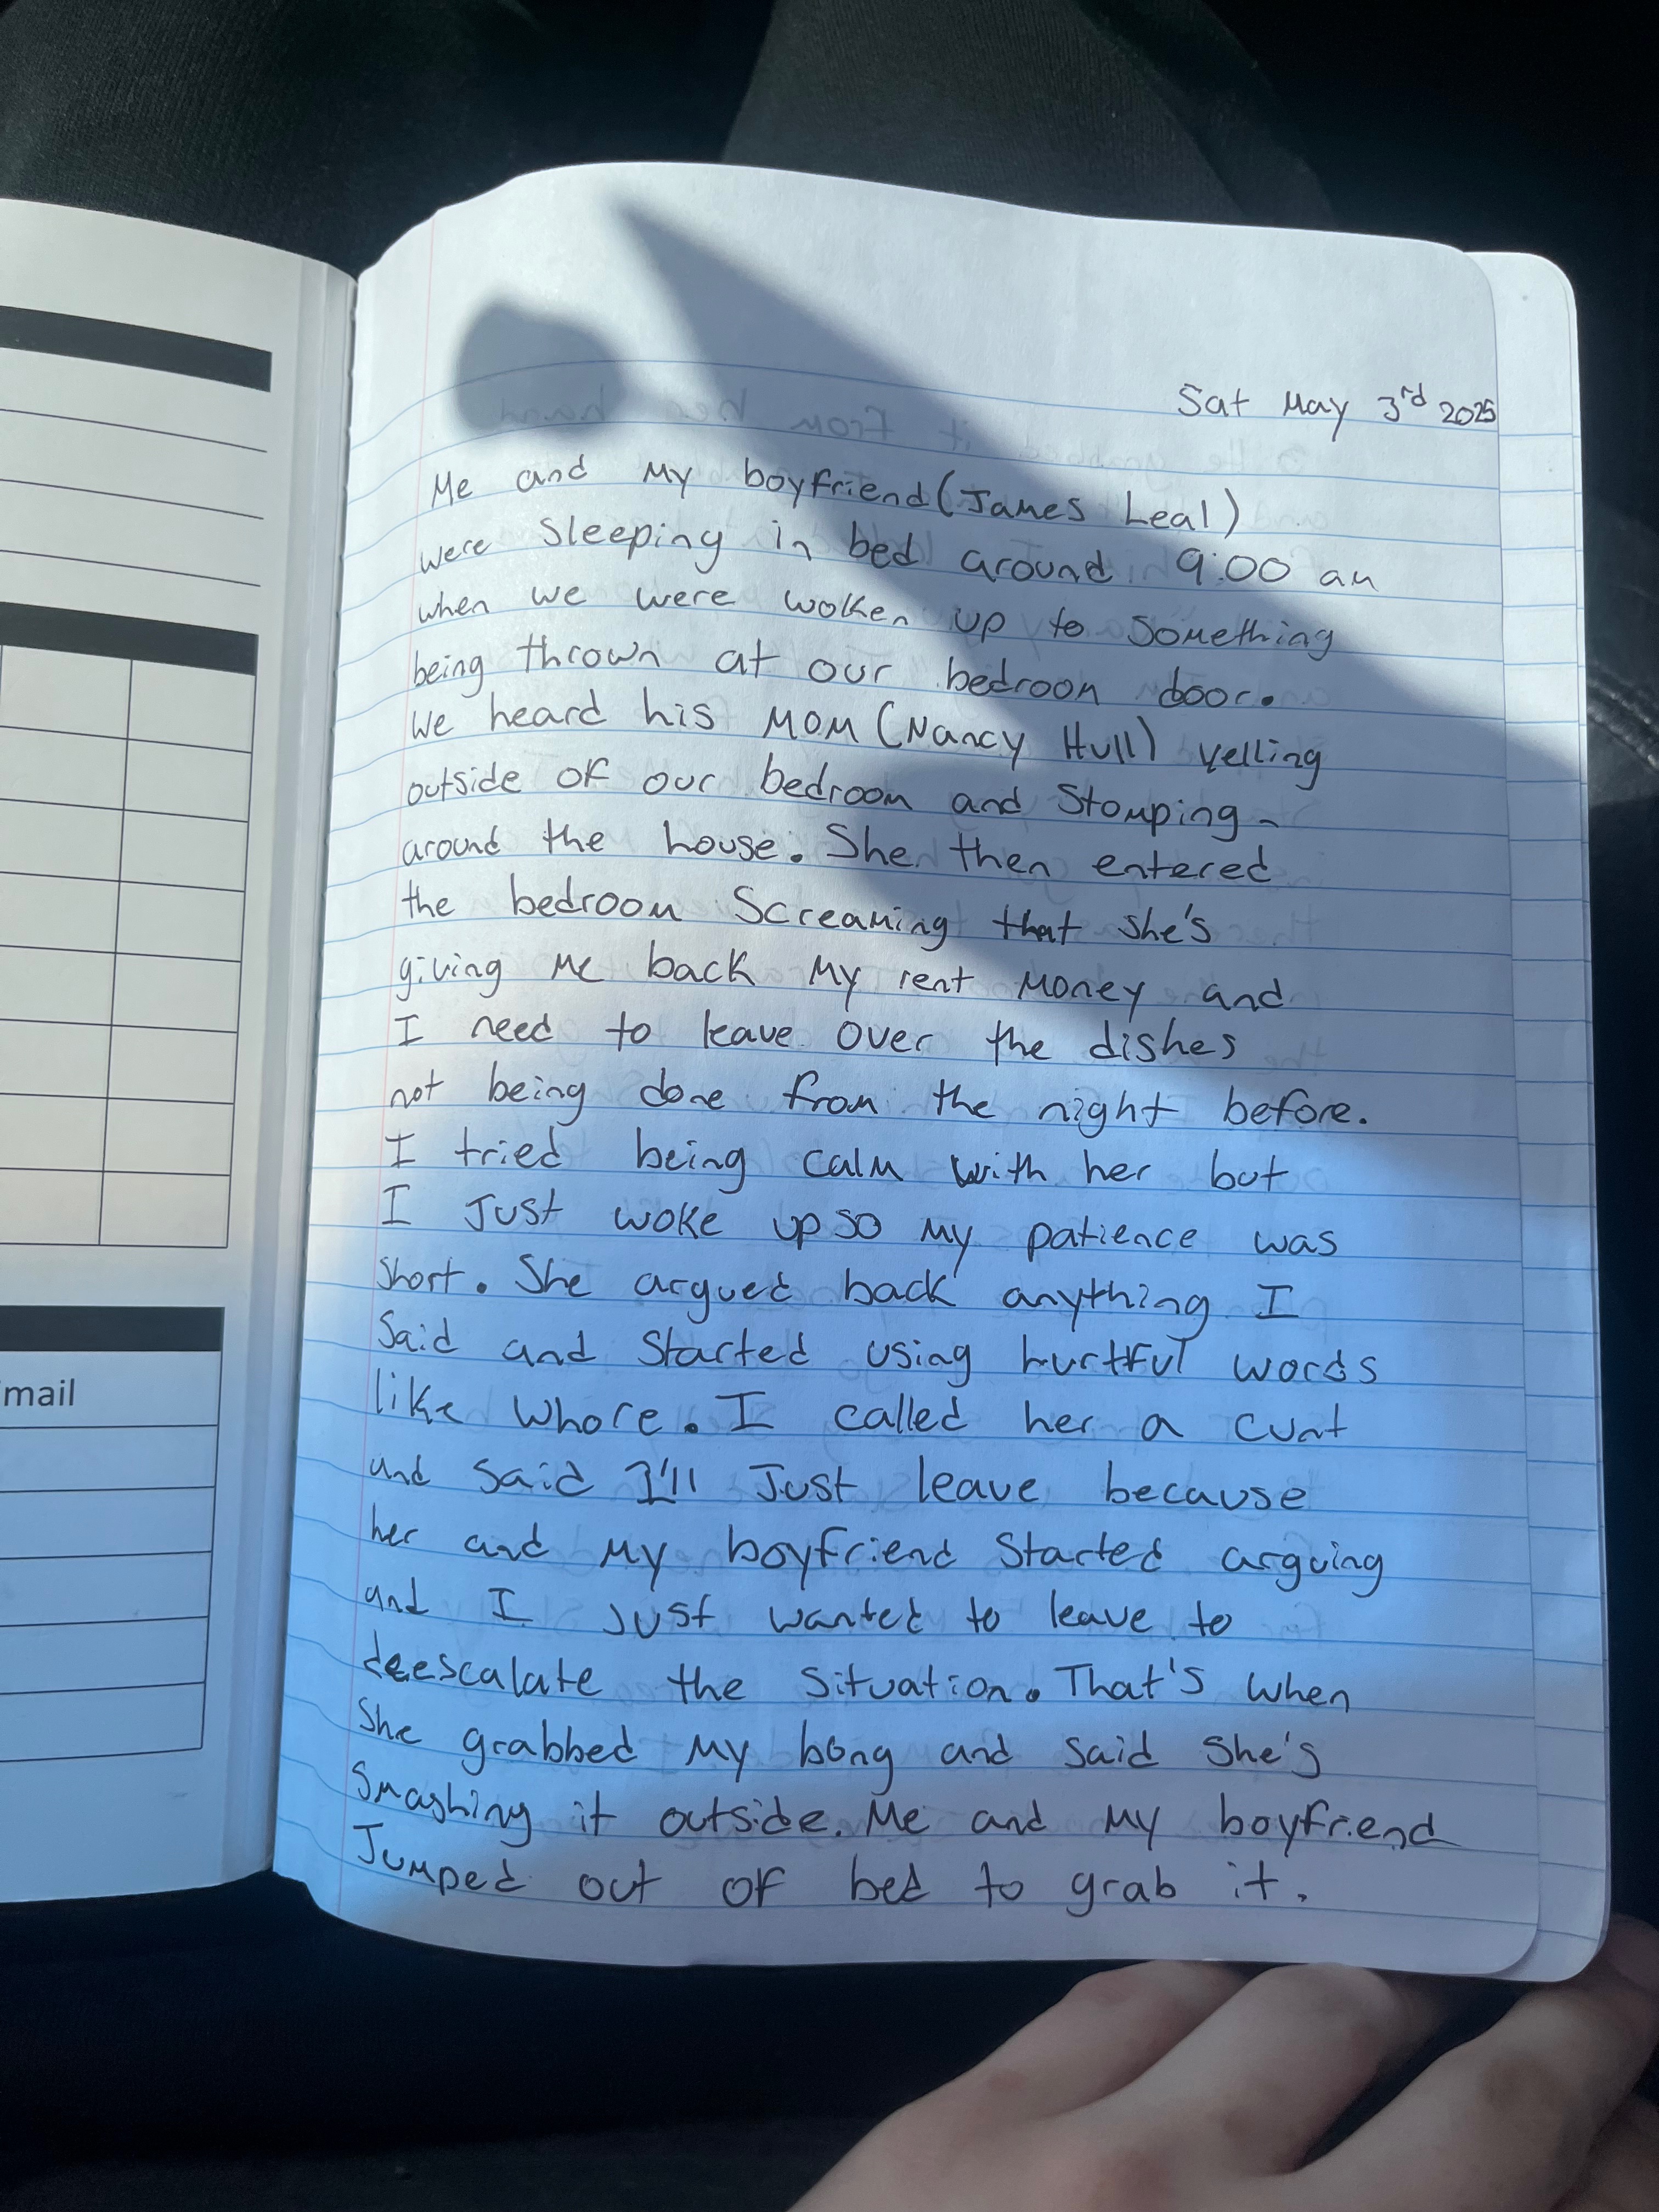 Sat May 3rd 2025
Me and my boyfriend (James Leal)
were sleeping in bed around 9:00 am
when we were woken up to something
being thrown at our bedroom door.
We heard his mom (Nancy Hull) yelling
outside of our bedroom and stomping
around the house. She then entered
the bedroom screaming that she's
giving me back my rent money and
I need to leave over the dishes
not being done from the night before.
I tried being calm with her but
I Just woke up so my patience was
short. She argued back anything I
said and started using hurtful words
like whore. I called her a cunt
and said I'll Just leave because
her and my boyfriend started arguing
and I just wanted to leave to
deescalate the situation. That's when
she grabbed my bong and said she's
smashing it outside. Me and my boyfriend
Jumped out of bed to grab it.
mail